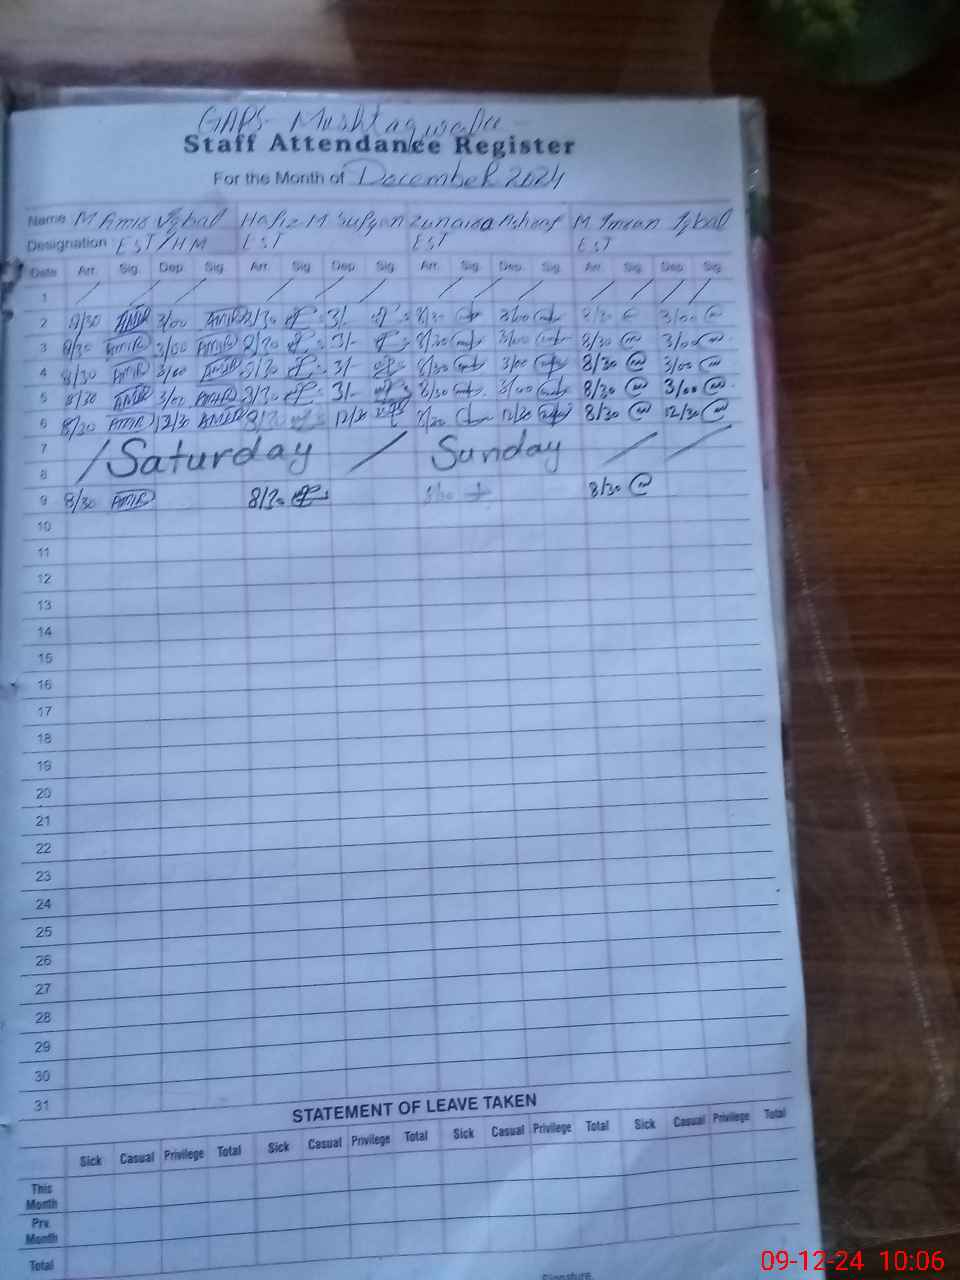 GAPS- Mushtaqwala
Staff Attendance Register
For the Month of December 2024
Name M Amir Iqbal Hafiz M Sufyan Zunaira Ashraf M. Imran Iqbal
Designation EST/HM EST EST EST
Date Arr. Sig. Dep. Sig. Arr. Sig. Dep. Sig. Arr. Sig. Dep. Sig. Arr. Sig. Dep. Sig.
1 / / / / / / / / / / / /
2 8/30 AMIR 3/00 AMIR 8/30 3/- 8/30 3/00 8/30 3/00
3 8/30 AMIR 3/00 AMIR 8/30 3/- 8/30 3/00 8/30 3/00
4 8/30 AMIR 3/00 AMIR 8/30 3/- 8/30 3/00 8/30 3/00
5 8/30 AMIR 3/00 AMIR 8/30 3/- 8/30 3/00 8/30 3/00
6 8/30 AMIR 12/30 AMIR 8/30 12/30 8/30 12/30 8/30 12/30
7 / Saturday / Sunday / /
8
9 8/30 AMIR 8/30 8/30 8/30
10
11
12
13
14
15
16
17
18
19
20
21
22
23
24
25
26
27
28
29
30
31
STATEMENT OF LEAVE TAKEN
Sick Casual Privilege Total Sick Casual Privilege Total Sick Casual Privilege Total Sick Casual Privilege Total
This Month
Prv. Month
Total
Signature.
09-12-24 10:06